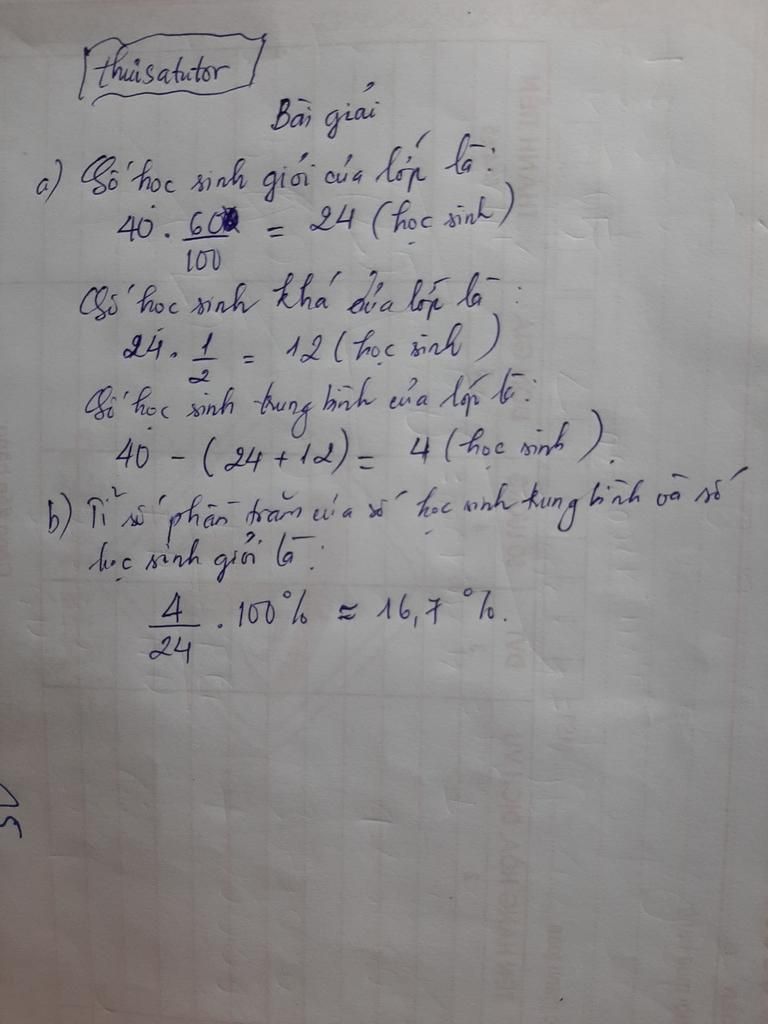 thuisatutor
Bài giải
a) Số học sinh giỏi của lớp là:
40 . 60/100 = 24 (học sinh)
Số học sinh khá của lớp là:
24 . 1/2 = 12 (học sinh)
Số học sinh trung bình của lớp là:
40 - (24 + 12) = 4 (học sinh).
b) Tỉ số phần trăm của số học sinh trung bình và số
học sinh giỏi là:
4/24 . 100% ≈ 16,7 %.